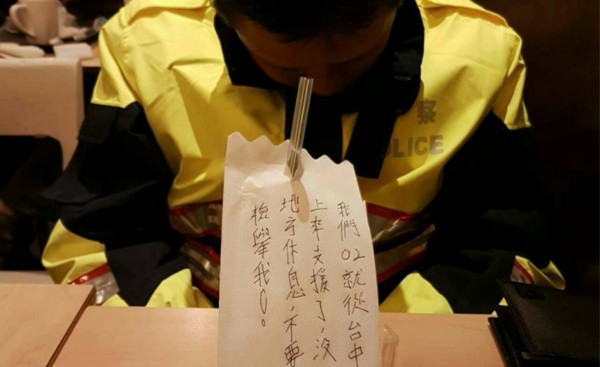 我們02就從台中
上來支援了,沒
地方休息,不要
檢舉我
察
POLICE